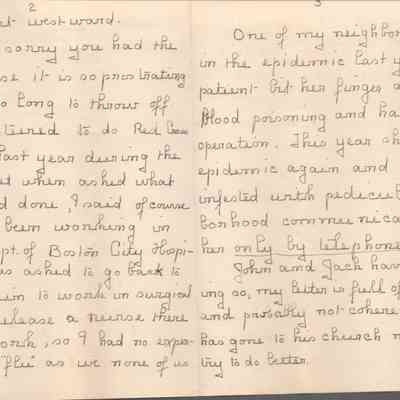 2
et westward.
sorry you had the
se it is so prostrating
o long to throw off
tered to do Red Cross
last year during the
et when asked what
d done, I said of course
been working in
pt. of Boston City Hospi-
as asked to go back to
im to work in surgical
elease a nurse there
ork, so I had no expo-
"flu" as we none of us
3
One of my neighbor
in the epidemic last y
patient bit her finger a
blood poisoning and ha
operation. This year sh
epidemic again and
infested with pedicul
borhood communica
her only by telephone
John and Jack hav
ing so, my letter is full of
and probably not cohere
has gone to his church m
try to do better.